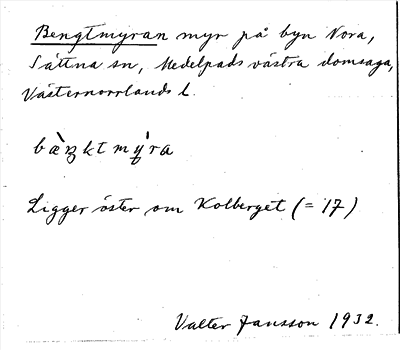 Bengtmyran myr på byn Nora,
Sättna sn, Medelpads västra domsaga,
Västernorrlands l.
bæ̀ŋktmy̆́ra
Ligger öster om Kolberget (= 17)
Valter Jansson 1932.